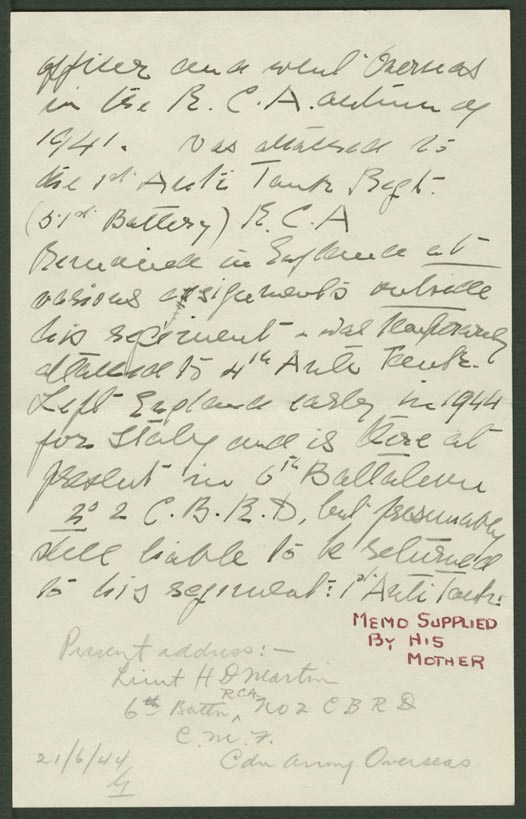 officer and went Overseas
in the R. C. A. autumn of
1941. Was attached to
the 1st Anti Tank Regt.
(51st Battery) R. C. A
Remained in England at
various assignments outside
his regiment - was temporarily
attached to 4th Anti Tank.
Left England early in 1944
for Italy and is there at
present in 6th Battalion
No 2 C. B. R. D, but presumably
still liable to be returned
to his regiment: 1st Anti Tank.
MEMO SUPPLIED
BY HIS
MOTHER
Present address:-
Lieut H D Martin
6th Battn RCA, No 2 C B R D
C. M. F.
Cdn Army Overseas
21/6/44